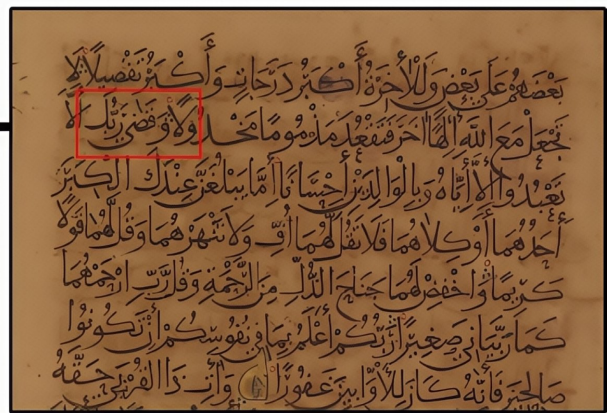 بعضهم على بعض وللأخرة أكبر درجات وأكبر تفضيلا لا
تجعل مع الله الها اخر فتقعد مذموما مخذولا وقضى ربك ألا
تعبدوا إلا اياه وبالوالدين أحسانا أما يبلغن عندك الكبر
أحدهما أو كلاهما فلا تقل لهما أف ولا تنهرهما وقل لهما قولا
كريما واخفض لهما جناح الذل من الرحمة وقل رب ارحمهما
كما ربياني صغيرا ربكم أعلم بما في نفوسكم إن تكونوا
صالحين فانه كان للأوابين غفورا وآت ذا القربى حقه